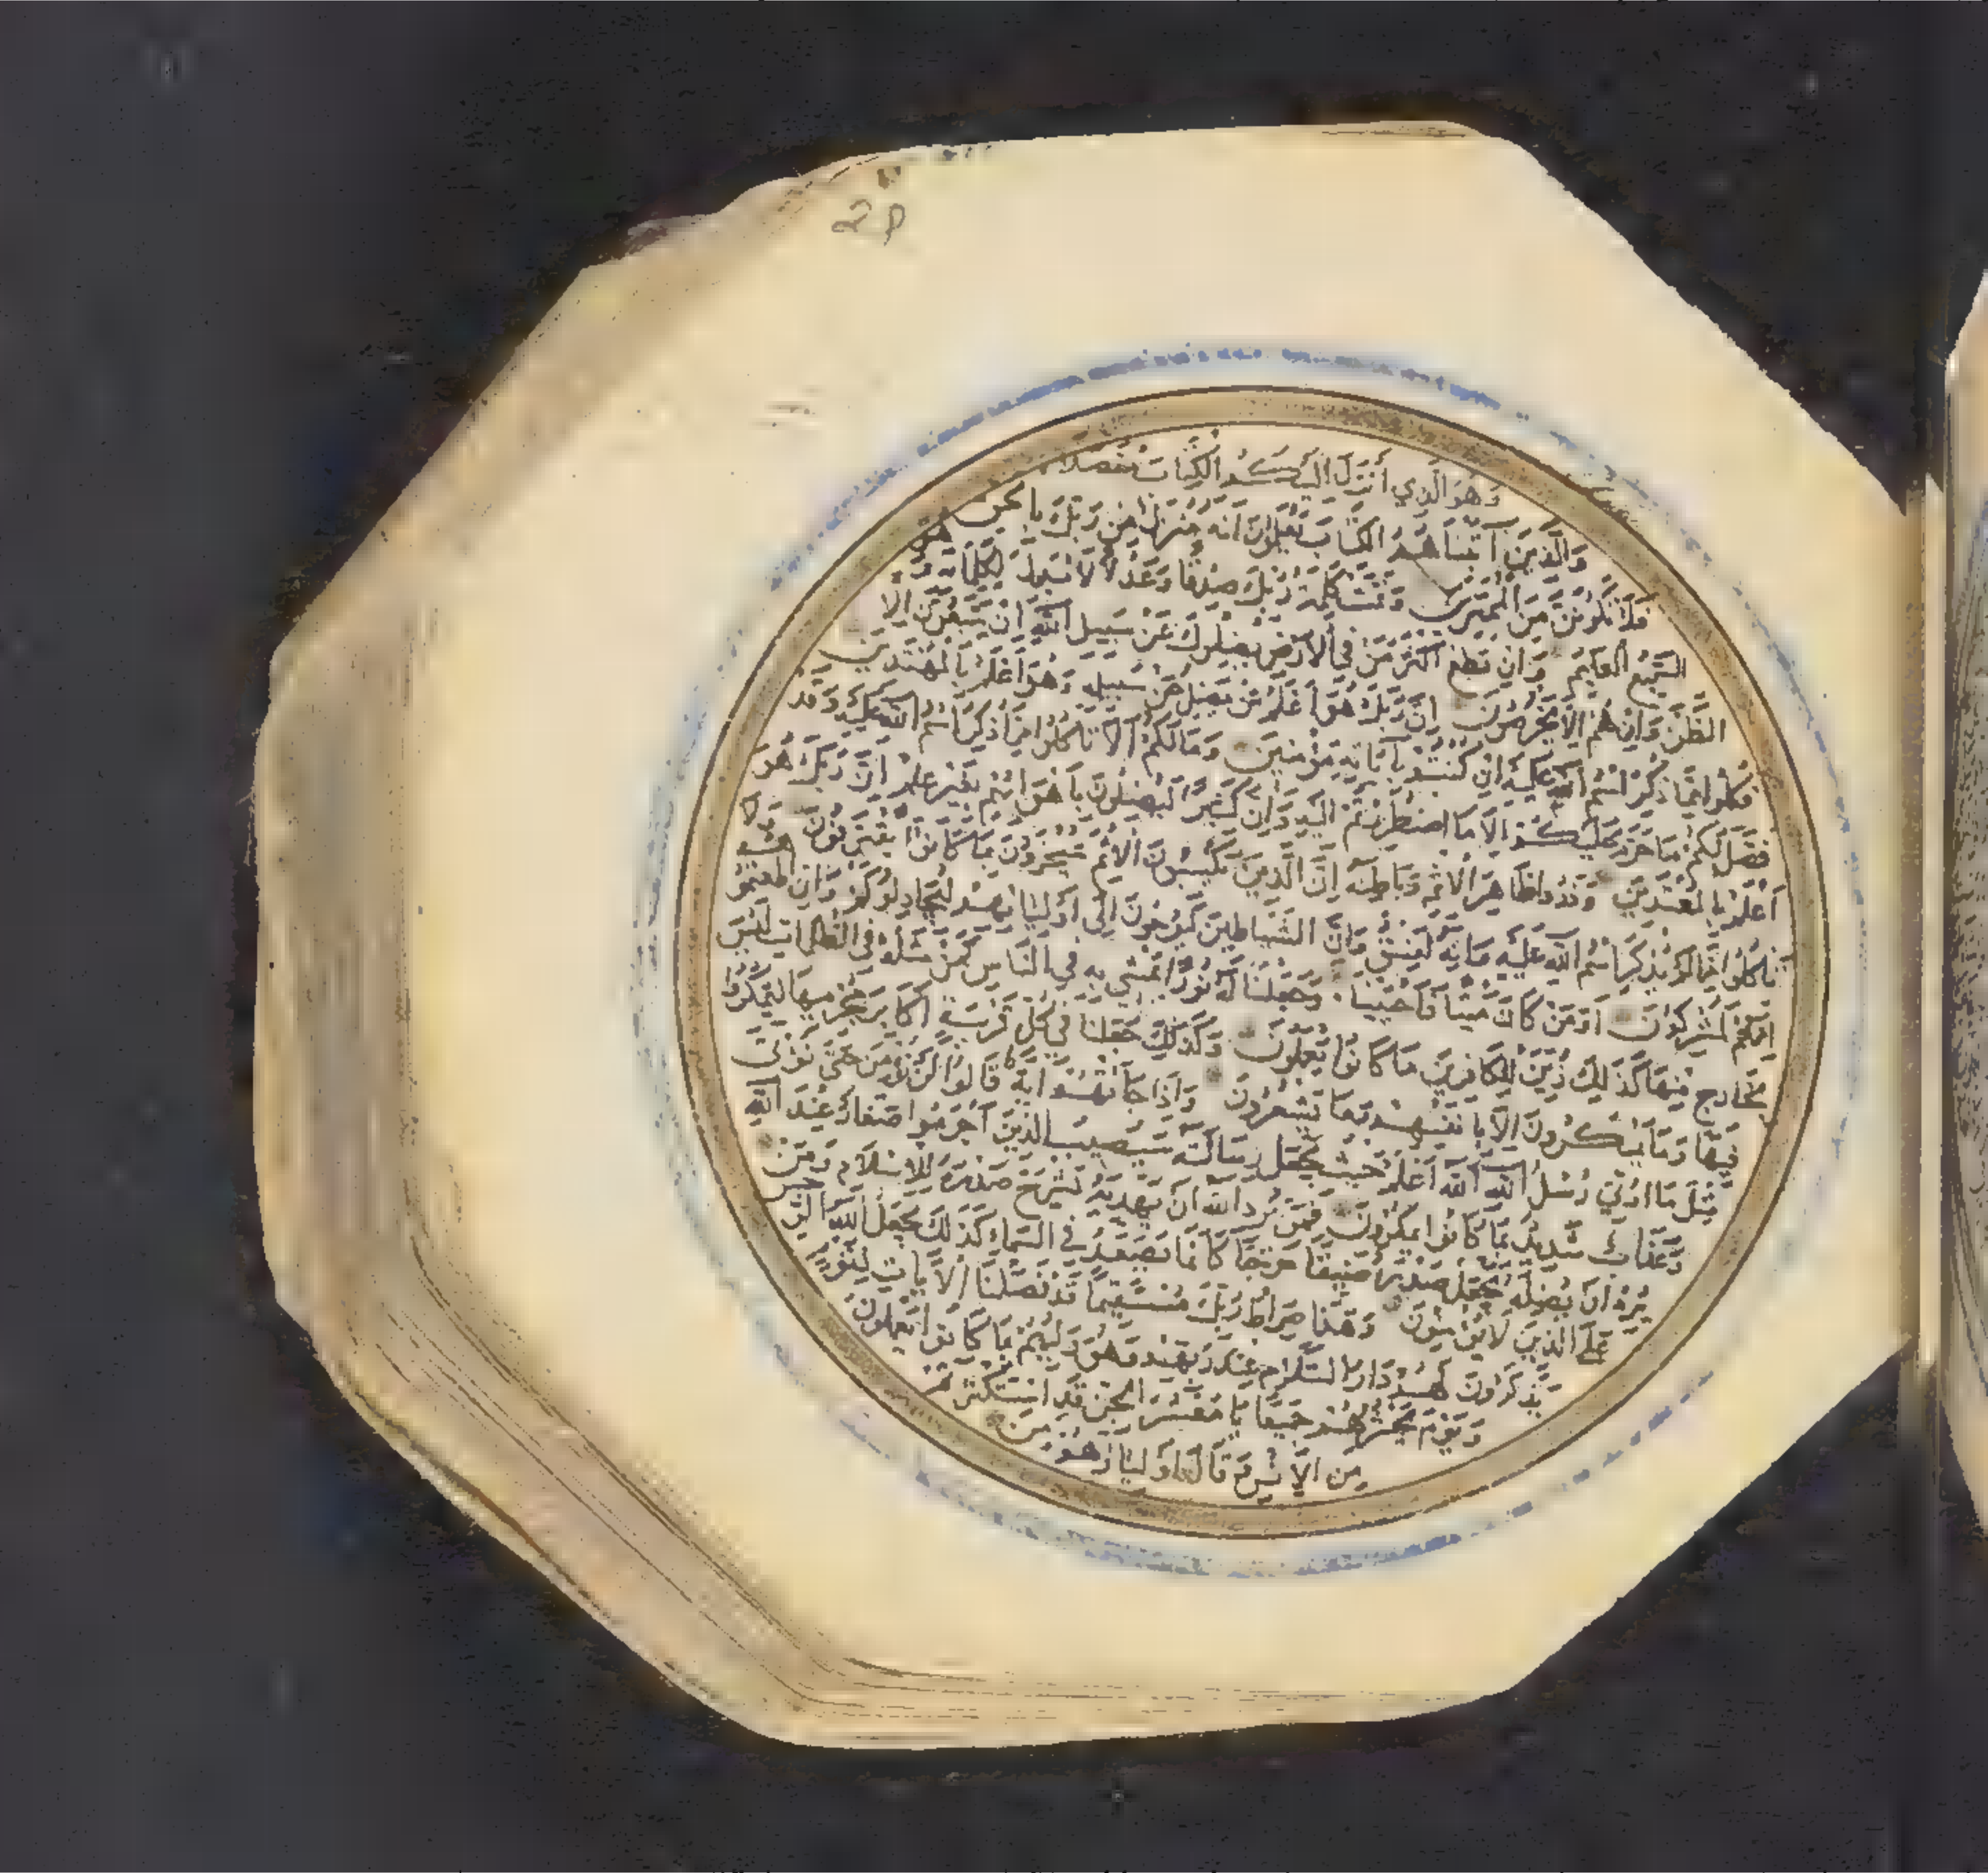 وَهُوَ الَّذِي أَنْزَلَ إِلَيْكُمُ الْكِتَابَ مُفَصَّلًا
وَالَّذِينَ آتَيْنَاهُمُ الْكِتَابَ يَعْلَمُونَ أَنَّهُ مُنَزَّلٌ مِنْ رَبِّكَ بِالْحَقِّ
فَلَا تَكُونَنَّ مِنَ الْمُمْتَرِينَ وَتَمَّتْ كَلِمَةُ رَبِّكَ صِدْقًا وَعَدْلًا لَا مُبَدِّلَ لِكَلِمَاتِهِ وَهُوَ
السَّمِيعُ الْعَلِيمُ وَإِنْ تُطِعْ أَكْثَرَ مَنْ فِي الْأَرْضِ يُضِلُّوكَ عَنْ سَبِيلِ اللَّهِ إِنْ يَتَّبِعُونَ إِلَّا
الظَّنَّ وَإِنْ هُمْ إِلَّا يَخْرُصُونَ إِنَّ رَبَّكَ هُوَ أَعْلَمُ مَنْ يَضِلُّ عَنْ سَبِيلِهِ وَهُوَ أَعْلَمُ بِالْمُهْتَدِينَ
فَكُلُوا مِمَّا ذُكِرَ اسْمُ اللَّهِ عَلَيْهِ إِنْ كُنْتُمْ بِآيَاتِهِ مُؤْمِنِينَ وَمَا لَكُمْ أَلَّا تَأْكُلُوا مِمَّا ذُكِرَ اسْمُ اللَّهِ عَلَيْهِ وَقَدْ
فَصَّلَ لَكُمْ مَا حَرَّمَ عَلَيْكُمْ إِلَّا مَا اضْطُرِرْتُمْ إِلَيْهِ وَإِنَّ كَثِيرًا لَيُضِلُّونَ بِأَهْوَائِهِمْ بِغَيْرِ عِلْمٍ إِنَّ رَبَّكَ هُوَ
أَعْلَمُ بِالْمُعْتَدِينَ وَذَرُوا ظَاهِرَ الْإِثْمِ وَبَاطِنَهُ إِنَّ الَّذِينَ يَكْسِبُونَ الْإِثْمَ سَيُجْزَوْنَ بِمَا كَانُوا يَقْتَرِفُونَ وَلَا
تَأْكُلُوا مِمَّا لَمْ يُذْكَرِ اسْمُ اللَّهِ عَلَيْهِ وَإِنَّهُ لَفِسْقٌ وَإِنَّ الشَّيَاطِينَ لَيُوحُونَ إِلَى أَوْلِيَائِهِمْ لِيُجَادِلُوكُمْ وَإِنْ أَطَعْتُمُوهُمْ
إِنَّكُمْ لَمُشْرِكُونَ أَوَمَنْ كَانَ مَيْتًا فَأَحْيَيْنَاهُ وَجَعَلْنَا لَهُ نُورًا يَمْشِي بِهِ فِي النَّاسِ كَمَنْ مَثَلُهُ فِي الظُّلُمَاتِ لَيْسَ
بِخَارِجٍ مِنْهَا كَذَلِكَ زُيِّنَ لِلْكَافِرِينَ مَا كَانُوا يَعْمَلُونَ وَكَذَلِكَ جَعَلْنَا فِي كُلِّ قَرْيَةٍ أَكَابِرَ مُجْرِمِيهَا لِيَمْكُرُوا
فِيهَا وَمَا يَمْكُرُونَ إِلَّا بِأَنْفُسِهِمْ وَمَا يَشْعُرُونَ وَإِذَا جَاءَتْهُمْ آيَةٌ قَالُوا لَنْ نُؤْمِنَ حَتَّى نُؤْتَى
مِثْلَ مَا أُوتِيَ رُسُلُ اللَّهِ اللَّهُ أَعْلَمُ حَيْثُ يَجْعَلُ رِسَالَتَهُ سَيُصِيبُ الَّذِينَ أَجْرَمُوا صَغَارٌ عِنْدَ اللَّهِ
وَعَذَابٌ شَدِيدٌ بِمَا كَانُوا يَمْكُرُونَ فَمَنْ يُرِدِ اللَّهُ أَنْ يَهْدِيَهُ يَشْرَحْ صَدْرَهُ لِلْإِسْلَامِ وَمَنْ
يُرِدْ أَنْ يُضِلَّهُ يَجْعَلْ صَدْرَهُ ضَيِّقًا حَرَجًا كَأَنَّمَا يَصَّعَّدُ فِي السَّمَاءِ كَذَلِكَ يَجْعَلُ اللَّهُ الرِّجْسَ
عَلَى الَّذِينَ لَا يُؤْمِنُونَ وَهَذَا صِرَاطُ رَبِّكَ مُسْتَقِيمًا قَدْ فَصَّلْنَا الْآيَاتِ لِقَوْمٍ
يَذَّكَّرُونَ لَهُمْ دَارُ السَّلَامِ عِنْدَ رَبِّهِمْ وَهُوَ وَلِيُّهُمْ بِمَا كَانُوا يَعْمَلُونَ
وَيَوْمَ يَحْشُرُهُمْ جَمِيعًا يَا مَعْشَرَ الْجِنِّ قَدِ اسْتَكْثَرْتُمْ
مِنَ الْإِنْسِ وَقَالَ أَوْلِيَاؤُهُمْ مِنَ